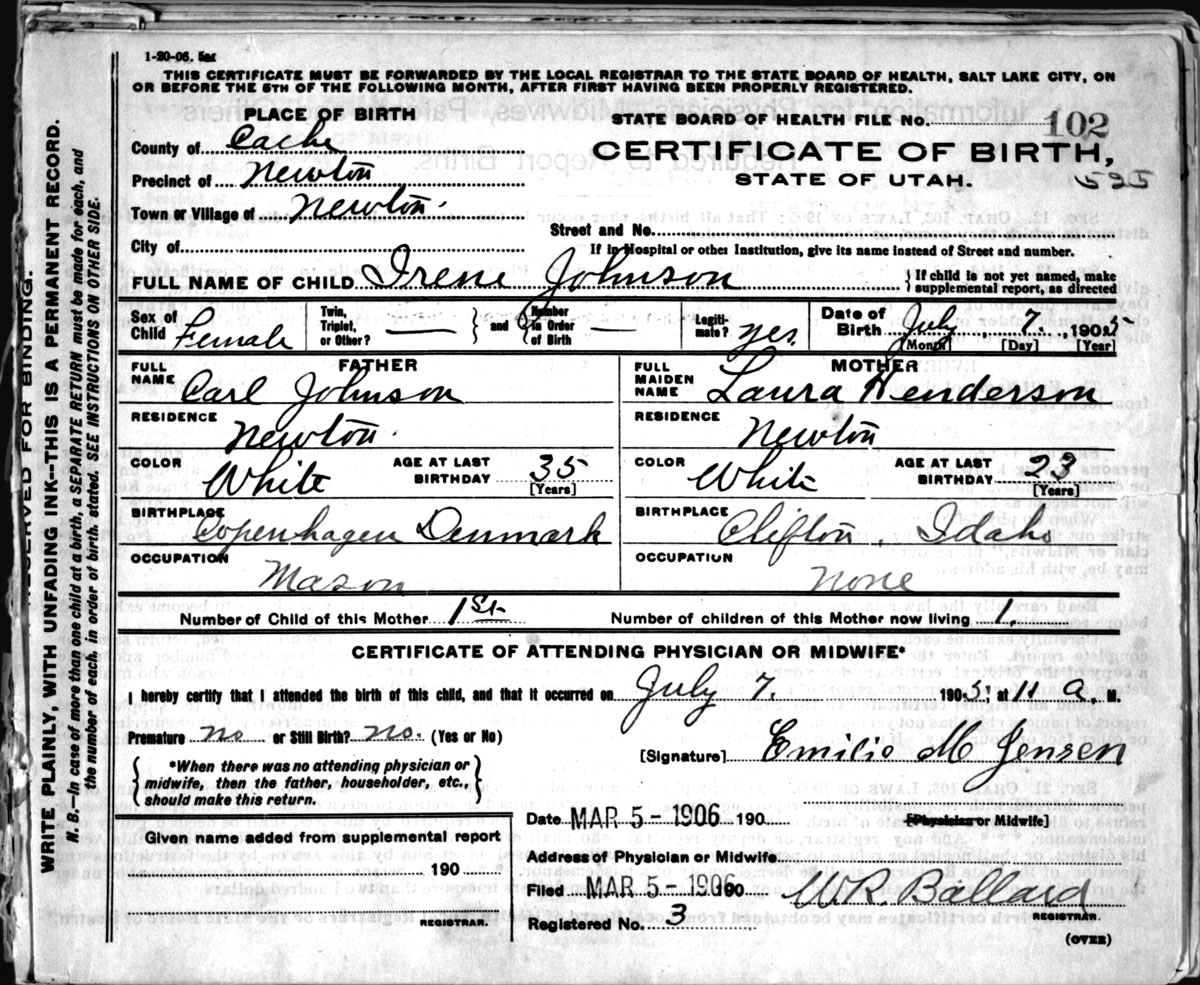 1-20-06.
THIS CERTIFICATE MUST BE FORWARDED BY THE LOCAL REGISTRAR TO THE STATE BOARD OF HEALTH, SALT LAKE CITY, ON
OR BEFORE THE 5TH OF THE FOLLOWING MONTH, AFTER FIRST HAVING BEEN PROPERLY REGISTERED.
PLACE OF BIRTH
County of Cache
Precinct of Newton
Town or Village of Newton.
City of
STATE BOARD OF HEALTH FILE No. 102
CERTIFICATE OF BIRTH,
STATE OF UTAH. 525
Street and No.
If in Hospital or other Institution, give its name instead of Street and number.
FULL NAME OF CHILD Irene Johnson } If child is not yet named, make
supplemental report, as directed
Sex of Child Female Twin, Triplet, or Other? — } and { Number in Order of Birth — Legiti-mate? yes. Date of Birth July 7., 1905
[Month] [Day] [Year]
FATHER
FULL NAME Carl Johnson
RESIDENCE Newton.
COLOR White AGE AT LAST BIRTHDAY 35
[Years]
BIRTHPLACE Copenhagen Denmark
OCCUPATION Mason
MOTHER
FULL MAIDEN NAME Laura Henderson
RESIDENCE Newton
COLOR White AGE AT LAST BIRTHDAY 23
[Years]
BIRTHPLACE Clifton, Idaho
OCCUPATION None
Number of Child of this Mother 1st Number of children of this Mother now living 1.
CERTIFICATE OF ATTENDING PHYSICIAN OR MIDWIFE*
I hereby certify that I attended the birth of this child, and that it occurred on July 7. 1905, at 11 a. M.
Premature no or Still Birth? no. (Yes or No)
[Signature] Emilie M Jensen
{ *When there was no attending physician or
midwife, then the father, householder, etc.,
should make this return. }
Date MAR 5 - 1906 190
[Physician or Midwife]
Given name added from supplemental report
190
REGISTRAR.
Address of Physician or Midwife
Filed MAR 5 - 1906 W. R. Ballard
REGISTRAR.
Registered No. 3
(OVER)
RESERVED FOR BINDING.
WRITE PLAINLY, WITH UNFADING INK--THIS IS A PERMANENT RECORD.
N. B.—In case of more than one child at a birth, a SEPARATE RETURN must be made for each, and
the number of each, in order of birth, stated. SEE INSTRUCTIONS ON OTHER SIDE.